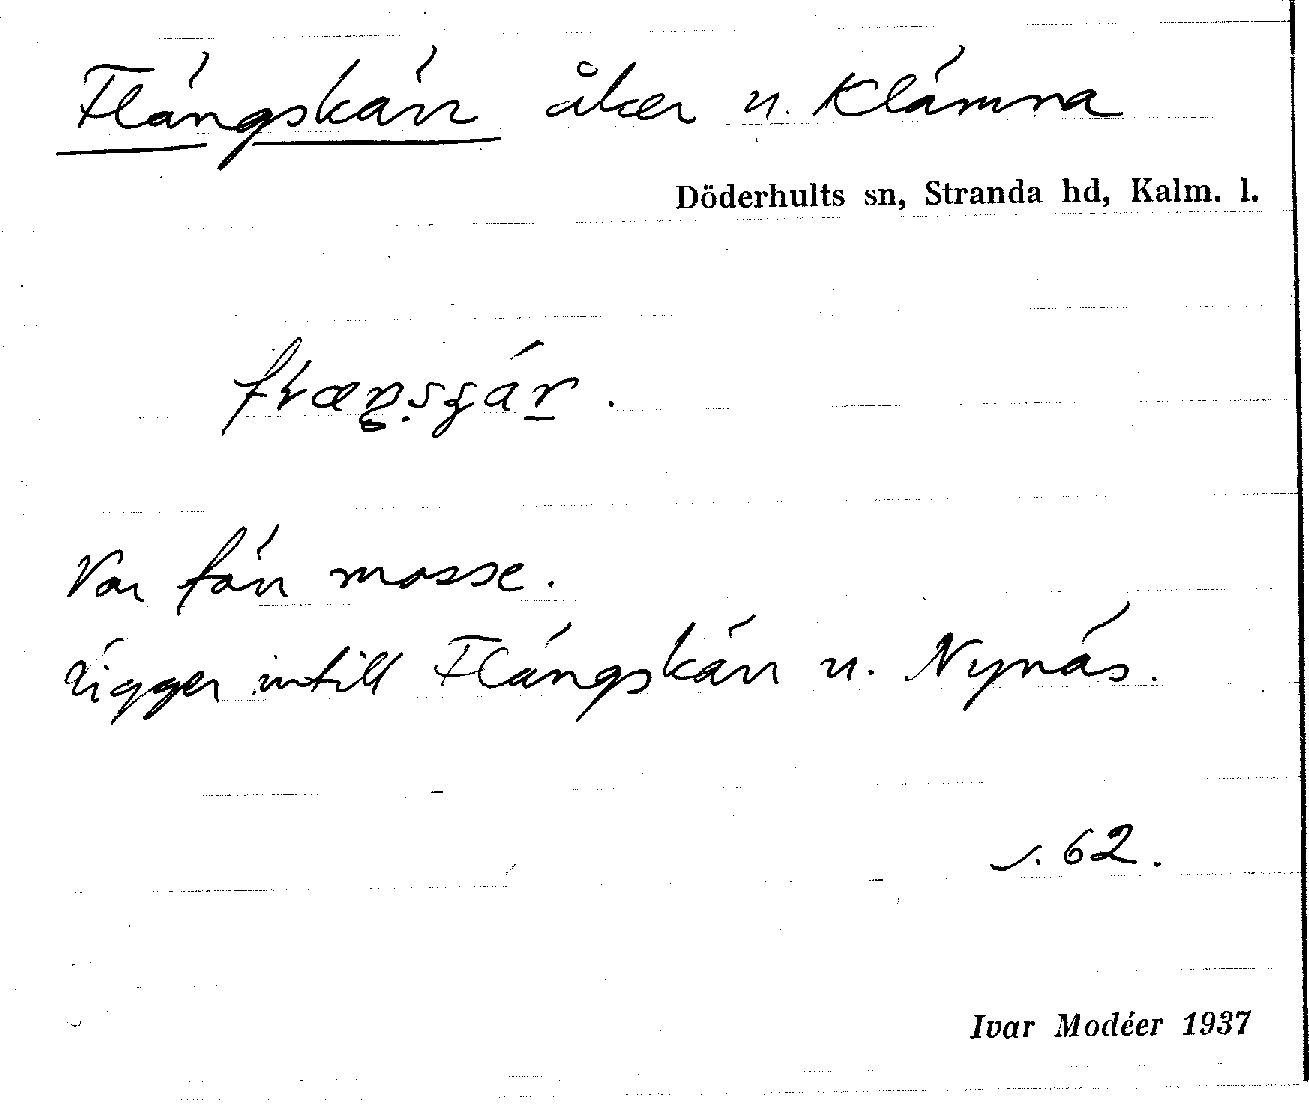 Flängskärr åker u. Klämna
Döderhults sn, Stranda hd, Kalm. l.
Var förr mosse.
Ligger intill Flängskärr u. Nynäs.
s. 62.
Ivar Modéer 1937